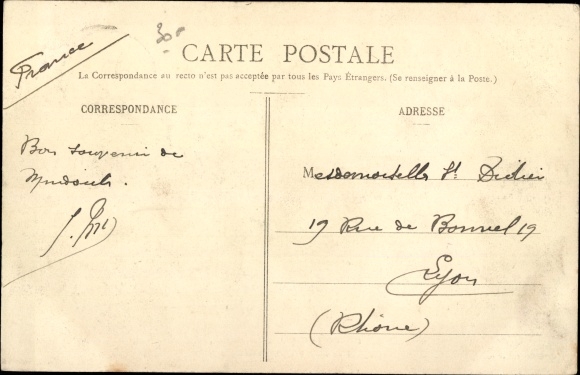 France
CARTE POSTALE
La Correspondance au recto n'est pas acceptée par tous les Pays Étrangers. (Se renseigner à la Poste.)
CORRESPONDANCE
Bon souvenir de
ADRESSE
Mesdemoiselles St Didier
19 Rue de Bonnel 19
Lyon
(Rhône)